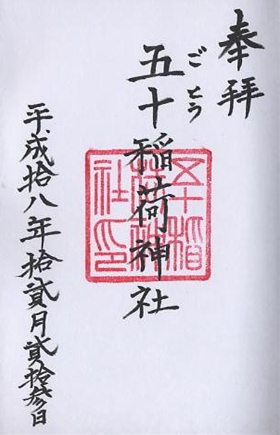 奉拝
ごとう
五十稲荷神社
五十稲荷神社印
平成拾八年拾貳月貳拾参日